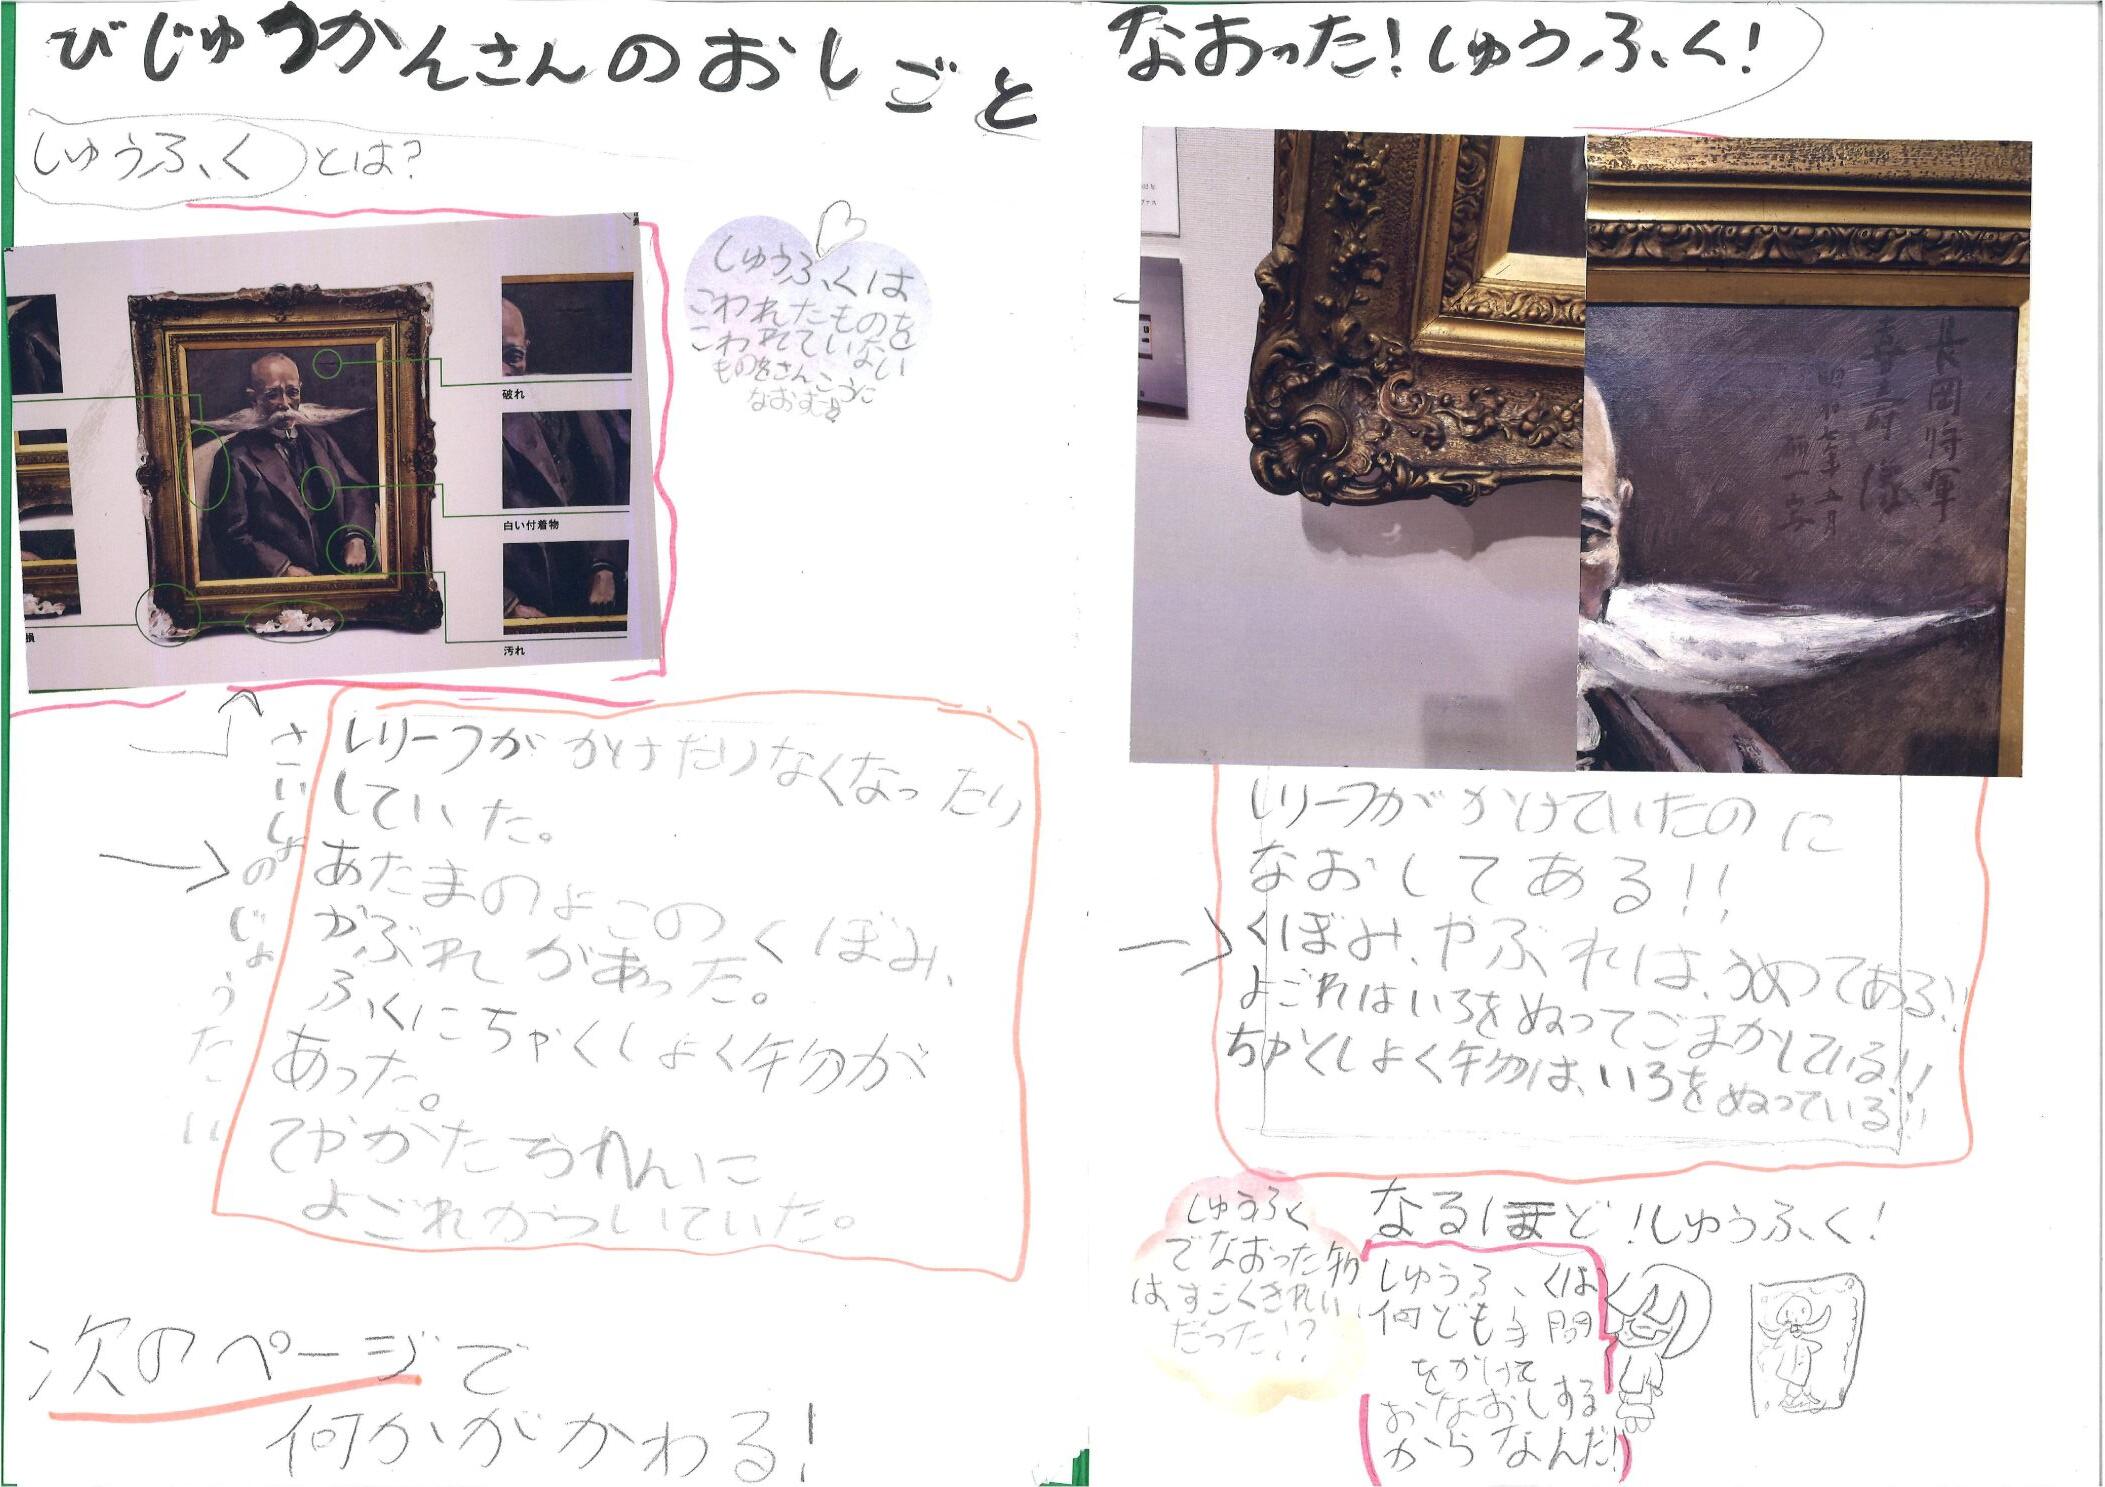 びじゅつかんさんのおしごと
しゅうふくとは?
破れ
白い付着物
汚れ
損
しゅうふくは
こわれたものを
こわれていない
ものをさんこうに
なおすよ
さいしょのじょうたい
レリーフがかけたりなくなったり
していた。
あたまのよこのくぼみ、
がぶれがあった。
ふくにちゃくしょく物が
あった。
てやがたられんに
よごれがついていた。
次のページで
何かがかわる!
なおった!しゅうふく!
長岡将軍
喜寿像
昭和七年五月
研一写
レリーフがかけていたのに
なおしてある!!
くぼみ、やぶれは、うめってある!!
よごれはいろをぬってごまかしている!!
ちゃくしょく物は、いろをぬっている!!
しゅうふく
でなおった物
は、すごくきれい
だった!?
なるほど!しゅうふく!
しゅうふくは
何ども手間
をかけて
おなおしする
からなんだ!